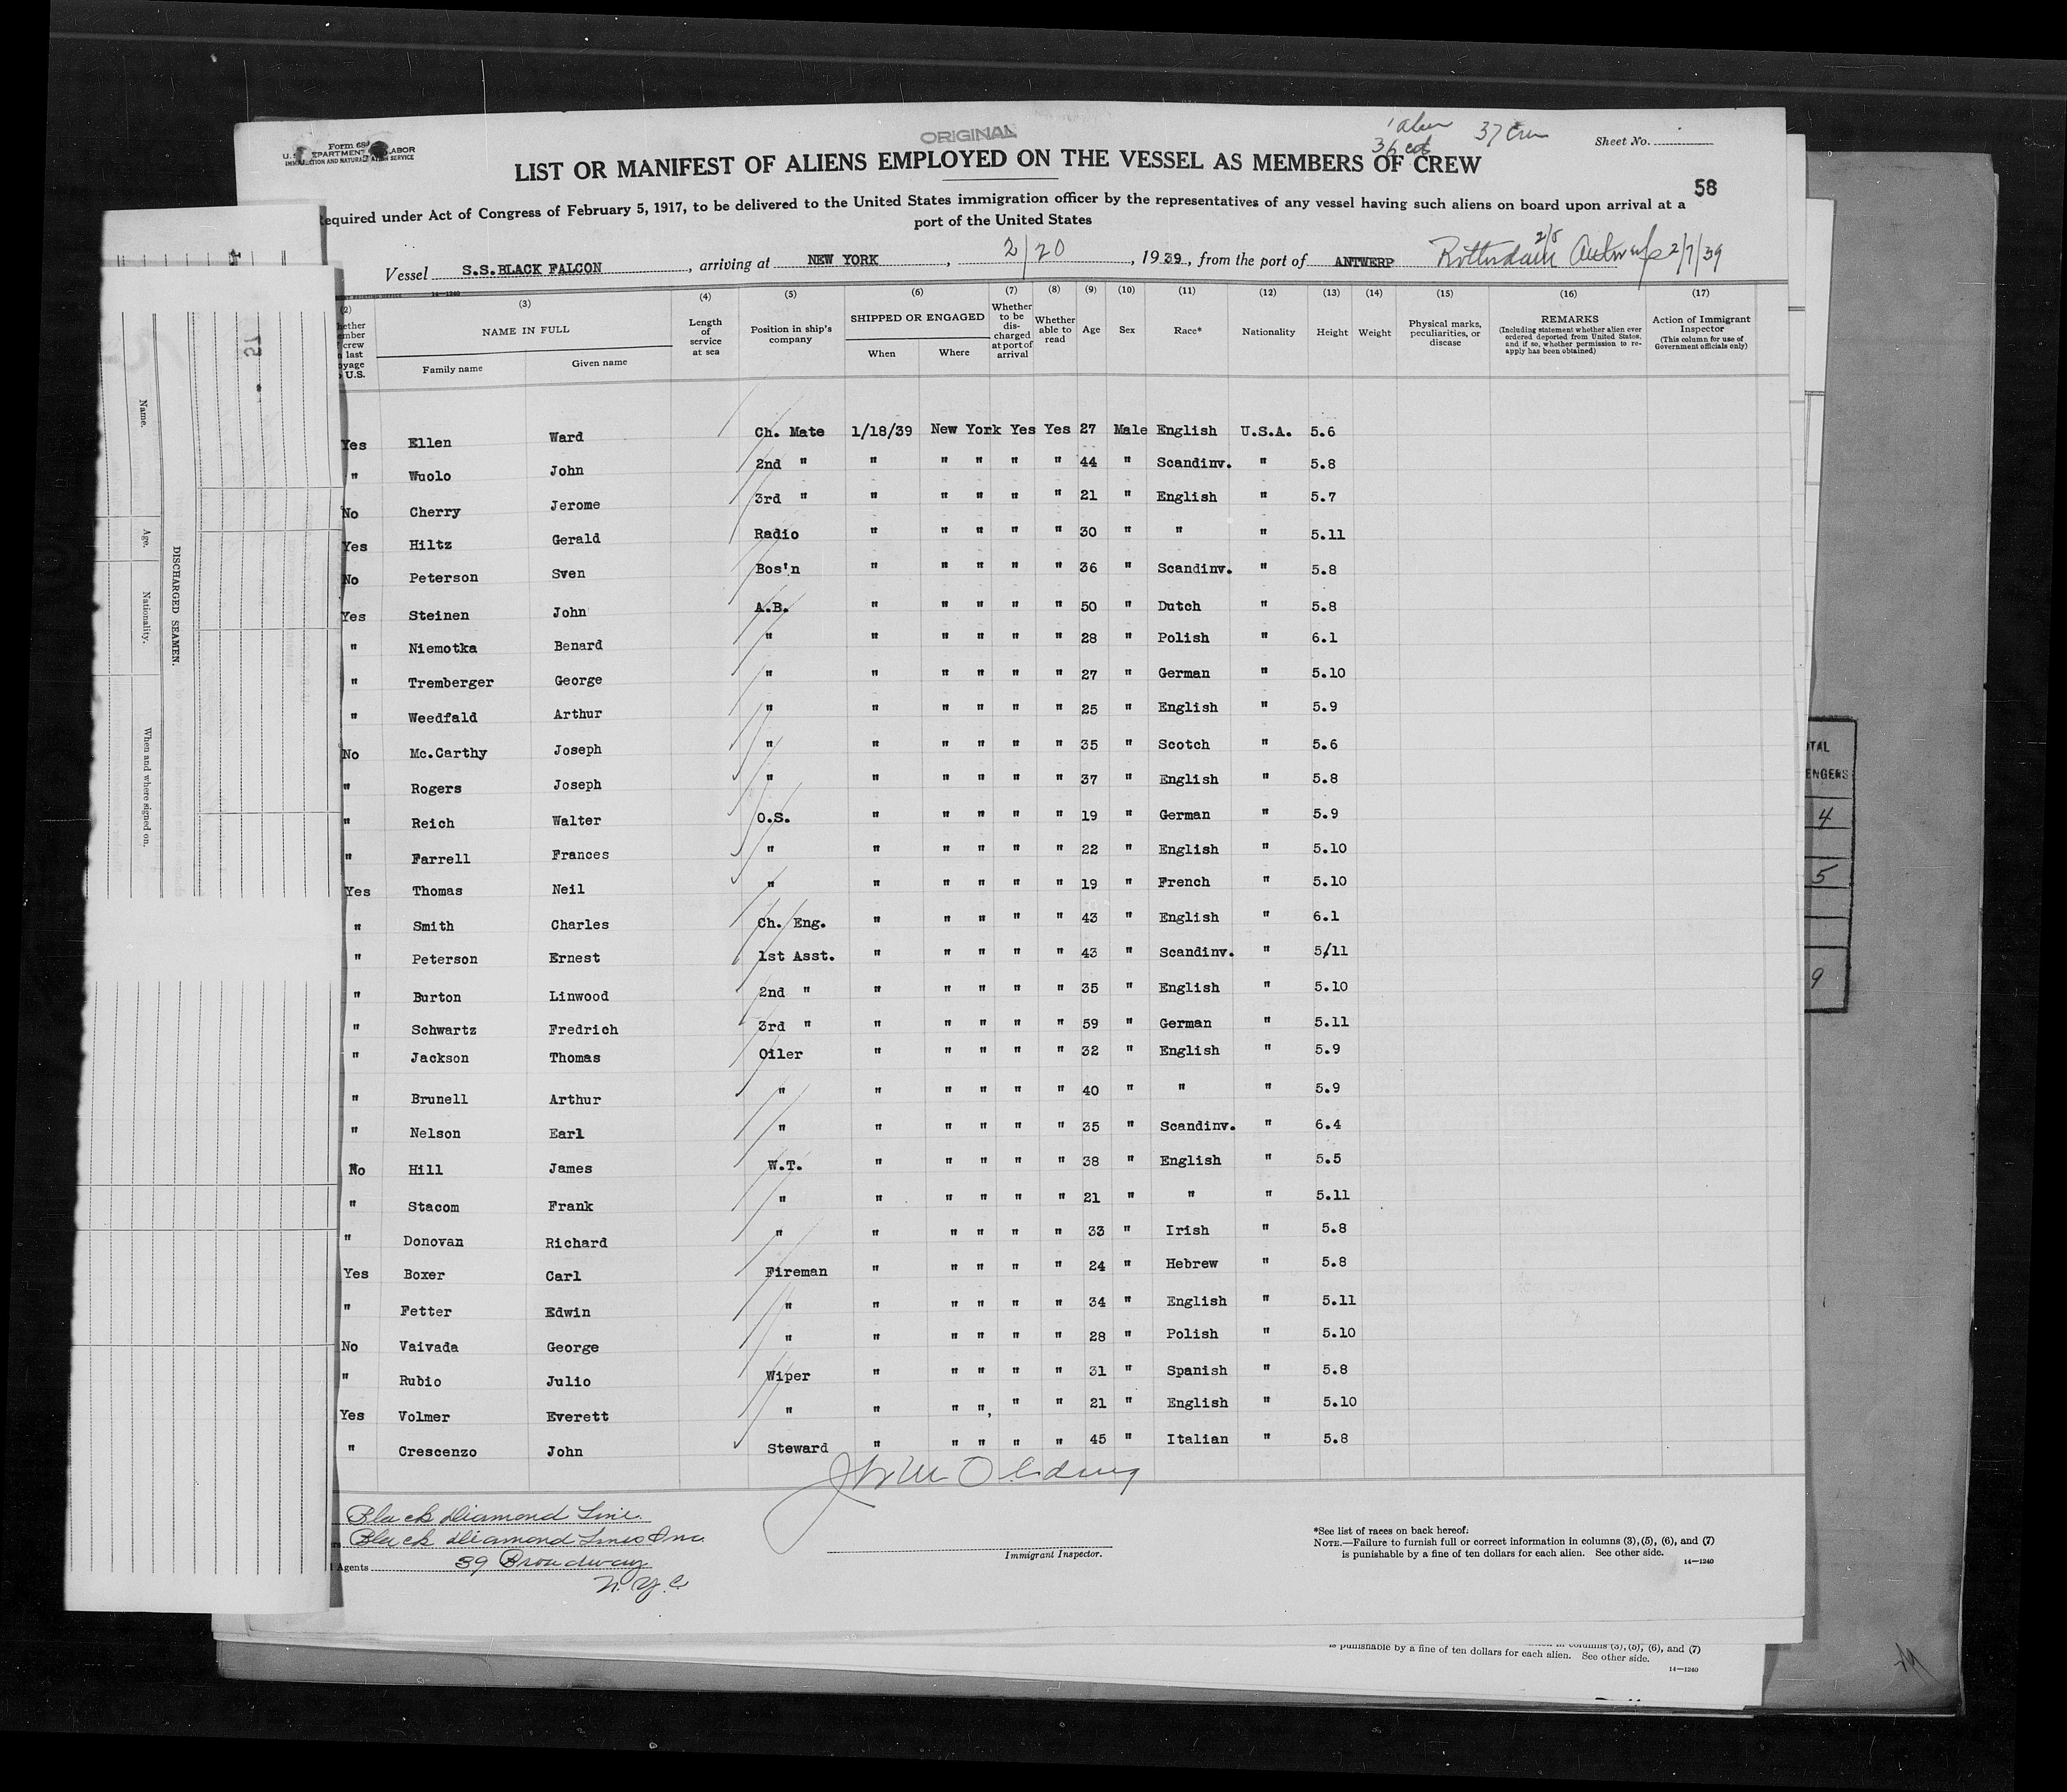 ORIGINAL
1 alien 37 Crew
36 cit
Form 68
U.S. DEPARTMENT LABOR
IMMIGRATION AND NATURALIZATION SERVICE
Sheet No.
LIST OR MANIFEST OF ALIENS EMPLOYED ON THE VESSEL AS MEMBERS OF CREW
58
equired under Act of Congress of February 5, 1917, to be delivered to the United States immigration officer by the representatives of any vessel having such aliens on board upon arrival at a
port of the United States
Vessel S.S.BLACK FALCON, arriving at NEW YORK, 2/20, 1939, from the port of ANTWERP Rotterdam 2/5 Antwerp 2/7/39
14—1240
(2) (3) (4) (5) (6) (7) (8) (9) (10) (11) (12) (13) (14) (15) (16) (17)
hether ember crew last oyage U.S.
NAME IN FULL
Family name Given name
Length of service at sea
Position in ship's company
SHIPPED OR ENGAGED
When Where
Whether to be discharged at port of arrival
Whether able to read
Age Sex Race* Nationality Height Weight
Physical marks, peculiarities, or disease
REMARKS
(Including statement whether alien ever ordered deported from United States, and if so, whether permission to re-apply has been obtained)
Action of Immigrant Inspector
(This column for use of Government officials only)
Yes Ellen Ward Ch. Mate 1/18/39 New York Yes Yes 27 Male English U.S.A. 5.6
" Wuolo John 2nd " " " " " " 44 " Scandinv. " 5.8
No Cherry Jerome 3rd " " " " " " 21 " English " 5.7
Yes Hiltz Gerald Radio " " " " " 30 " " " 5.11
No Peterson Sven Bos'n " " " " " 36 " Scandinv. " 5.8
Yes Steinen John A.B. " " " " " 50 " Dutch " 5.8
" Niemotka Benard " " " " " " 28 " Polish " 6.1
" Tremberger George " " " " " " 27 " German " 5.10
" Weedfald Arthur " " " " " " 25 " English " 5.9
No Mc.Carthy Joseph " " " " " " 35 " Scotch " 5.6
" Rogers Joseph " " " " " " 37 " English " 5.8
" Reich Walter O.S. " " " " " 19 " German " 5.9
" Farrell Frances " " " " " " 22 " English " 5.10
Yes Thomas Neil " " " " " " 19 " French " 5.10
" Smith Charles Ch. Eng. " " " " " 43 " English " 6.1
" Peterson Ernest 1st Asst. " " " " " 43 " Scandinv. " 5/11
" Burton Linwood 2nd " " " " " " 35 " English " 5.10
" Schwartz Fredrich 3rd " " " " " " 59 " German " 5.11
" Jackson Thomas Oiler " " " " " 32 " English " 5.9
" Brunell Arthur " " " " " " 40 " " " 5.9
" Nelson Earl " " " " " " 35 " Scandinv. " 6.4
No Hill James W.T. " " " " " 38 " English " 5.5
" Stacom Frank " " " " " " 21 " " " 5.11
" Donovan Richard " " " " " " 33 " Irish " 5.8
Yes Boxer Carl Fireman " " " " " 24 " Hebrew " 5.8
" Fetter Edwin " " " " " " 34 " English " 5.11
No Vaivada George " " " " " " 28 " Polish " 5.10
" Rubio Julio Wiper " " " " " 31 " Spanish " 5.8
Yes Volmer Everett " " " ", " " 21 " English " 5.10
" Crescenzo John Steward " " " " " 45 " Italian " 5.8
Black Diamond Line.
Black Diamond Lines Inc.
Agents 39 Broadway
N.Y.C
Immigrant Inspector.
*See list of races on back hereof.
NOTE.—Failure to furnish full or correct information in columns (3), (5), (6), and (7)
is punishable by a fine of ten dollars for each alien. See other side.
14—1240
columns (3), (5), (6), and (7)
is punishable by a fine of ten dollars for each alien. See other side.
14—1240
Name. Age. Nationality. When and where signed on.
DISCHARGED SEAMEN.
TAL
ENGERS
4
5
9